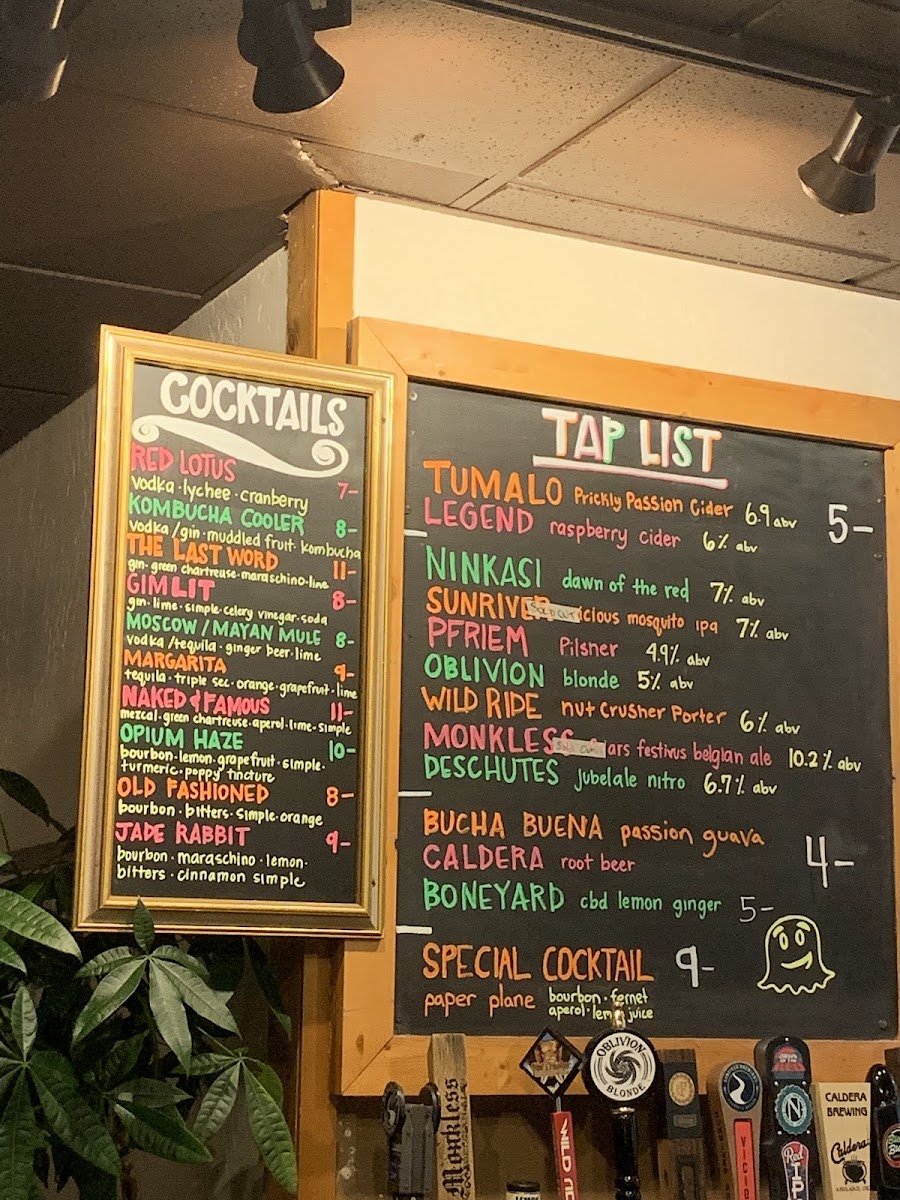 COCKTAILS
RED LOTUS 7-
vodka · lychee · cranberry
KOMBUCHA COOLER 8-
vodka / gin · muddled fruit · kombucha
THE LAST WORD 11-
gin · green chartreuse · maraschino · lime
GIMLIT 8-
gin · lime · simple · celery vinegar · soda
MOSCOW / MAYAN MULE 8-
vodka / tequila · ginger beer · lime
MARGARITA 9-
tequila · triple sec · orange · grapefruit · lime
NAKED & FAMOUS 11-
mezcal · green chartreuse · aperol · lime · simple
OPIUM HAZE 10-
bourbon · lemon · grapefruit · simple ·
turmeric · poppy tincture
OLD FASHIONED 8-
bourbon · bitters · simple · orange
JADE RABBIT 9-
bourbon · maraschino · lemon ·
bitters · cinnamon simple
TAP LIST
TUMALO Prickly Passion Cider 6.9 abv 5-
LEGEND raspberry cider 6% abv
NINKASI dawn of the red 7% abv
SUNRIVER SOLD OUT icious mosquito ipa 7% abv
PFRIEM Pilsner 4.9% abv
OBLIVION blonde 5% abv
WILD RIDE nut crusher Porter 6% abv
MONKLESS Sold Out ars festivus belgian ale 10.2% abv
DESCHUTES jubelale nitro 6.7% abv
BUCHA BUENA passion guava
4-
CALDERA root beer
BONEYARD cbd lemon ginger 5-
SPECIAL COCKTAIL 9-
paper plane bourbon · fernet
aperol · lemon juice
Monkless
WILD
OBLIVION
BLONDE
VICIO
N
Red
IP
CALDERA
BREWING
Caldera
ASHLAND, OR